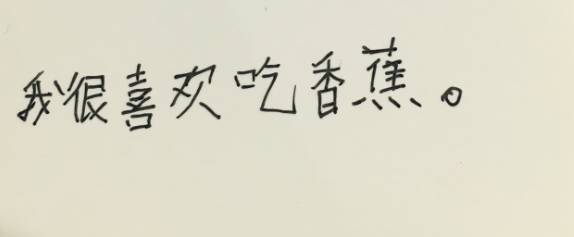 我很喜欢吃香蕉。